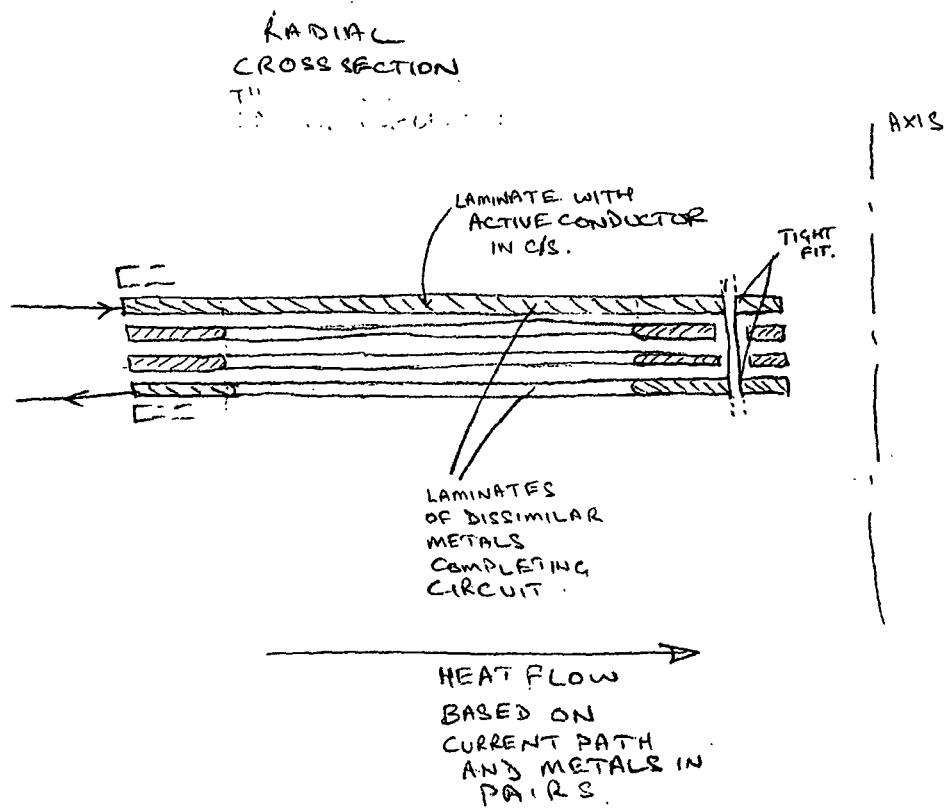 RADIAL
CROSS SECTION
AXIS
LAMINATE WITH
ACTIVE CONDUCTOR
IN C/S.
TIGHT
FIT.
LAMINATES
OF DISSIMILAR
METALS
COMPLETING
CIRCUIT.
HEAT FLOW
BASED ON
CURRENT PATH
AND METALS IN
PAIRS.